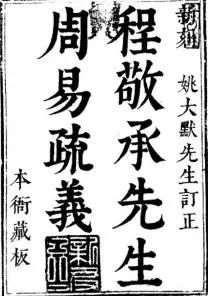 新刻
姚大默先生訂正
程敬承先生
周易疏義
本衙藏板